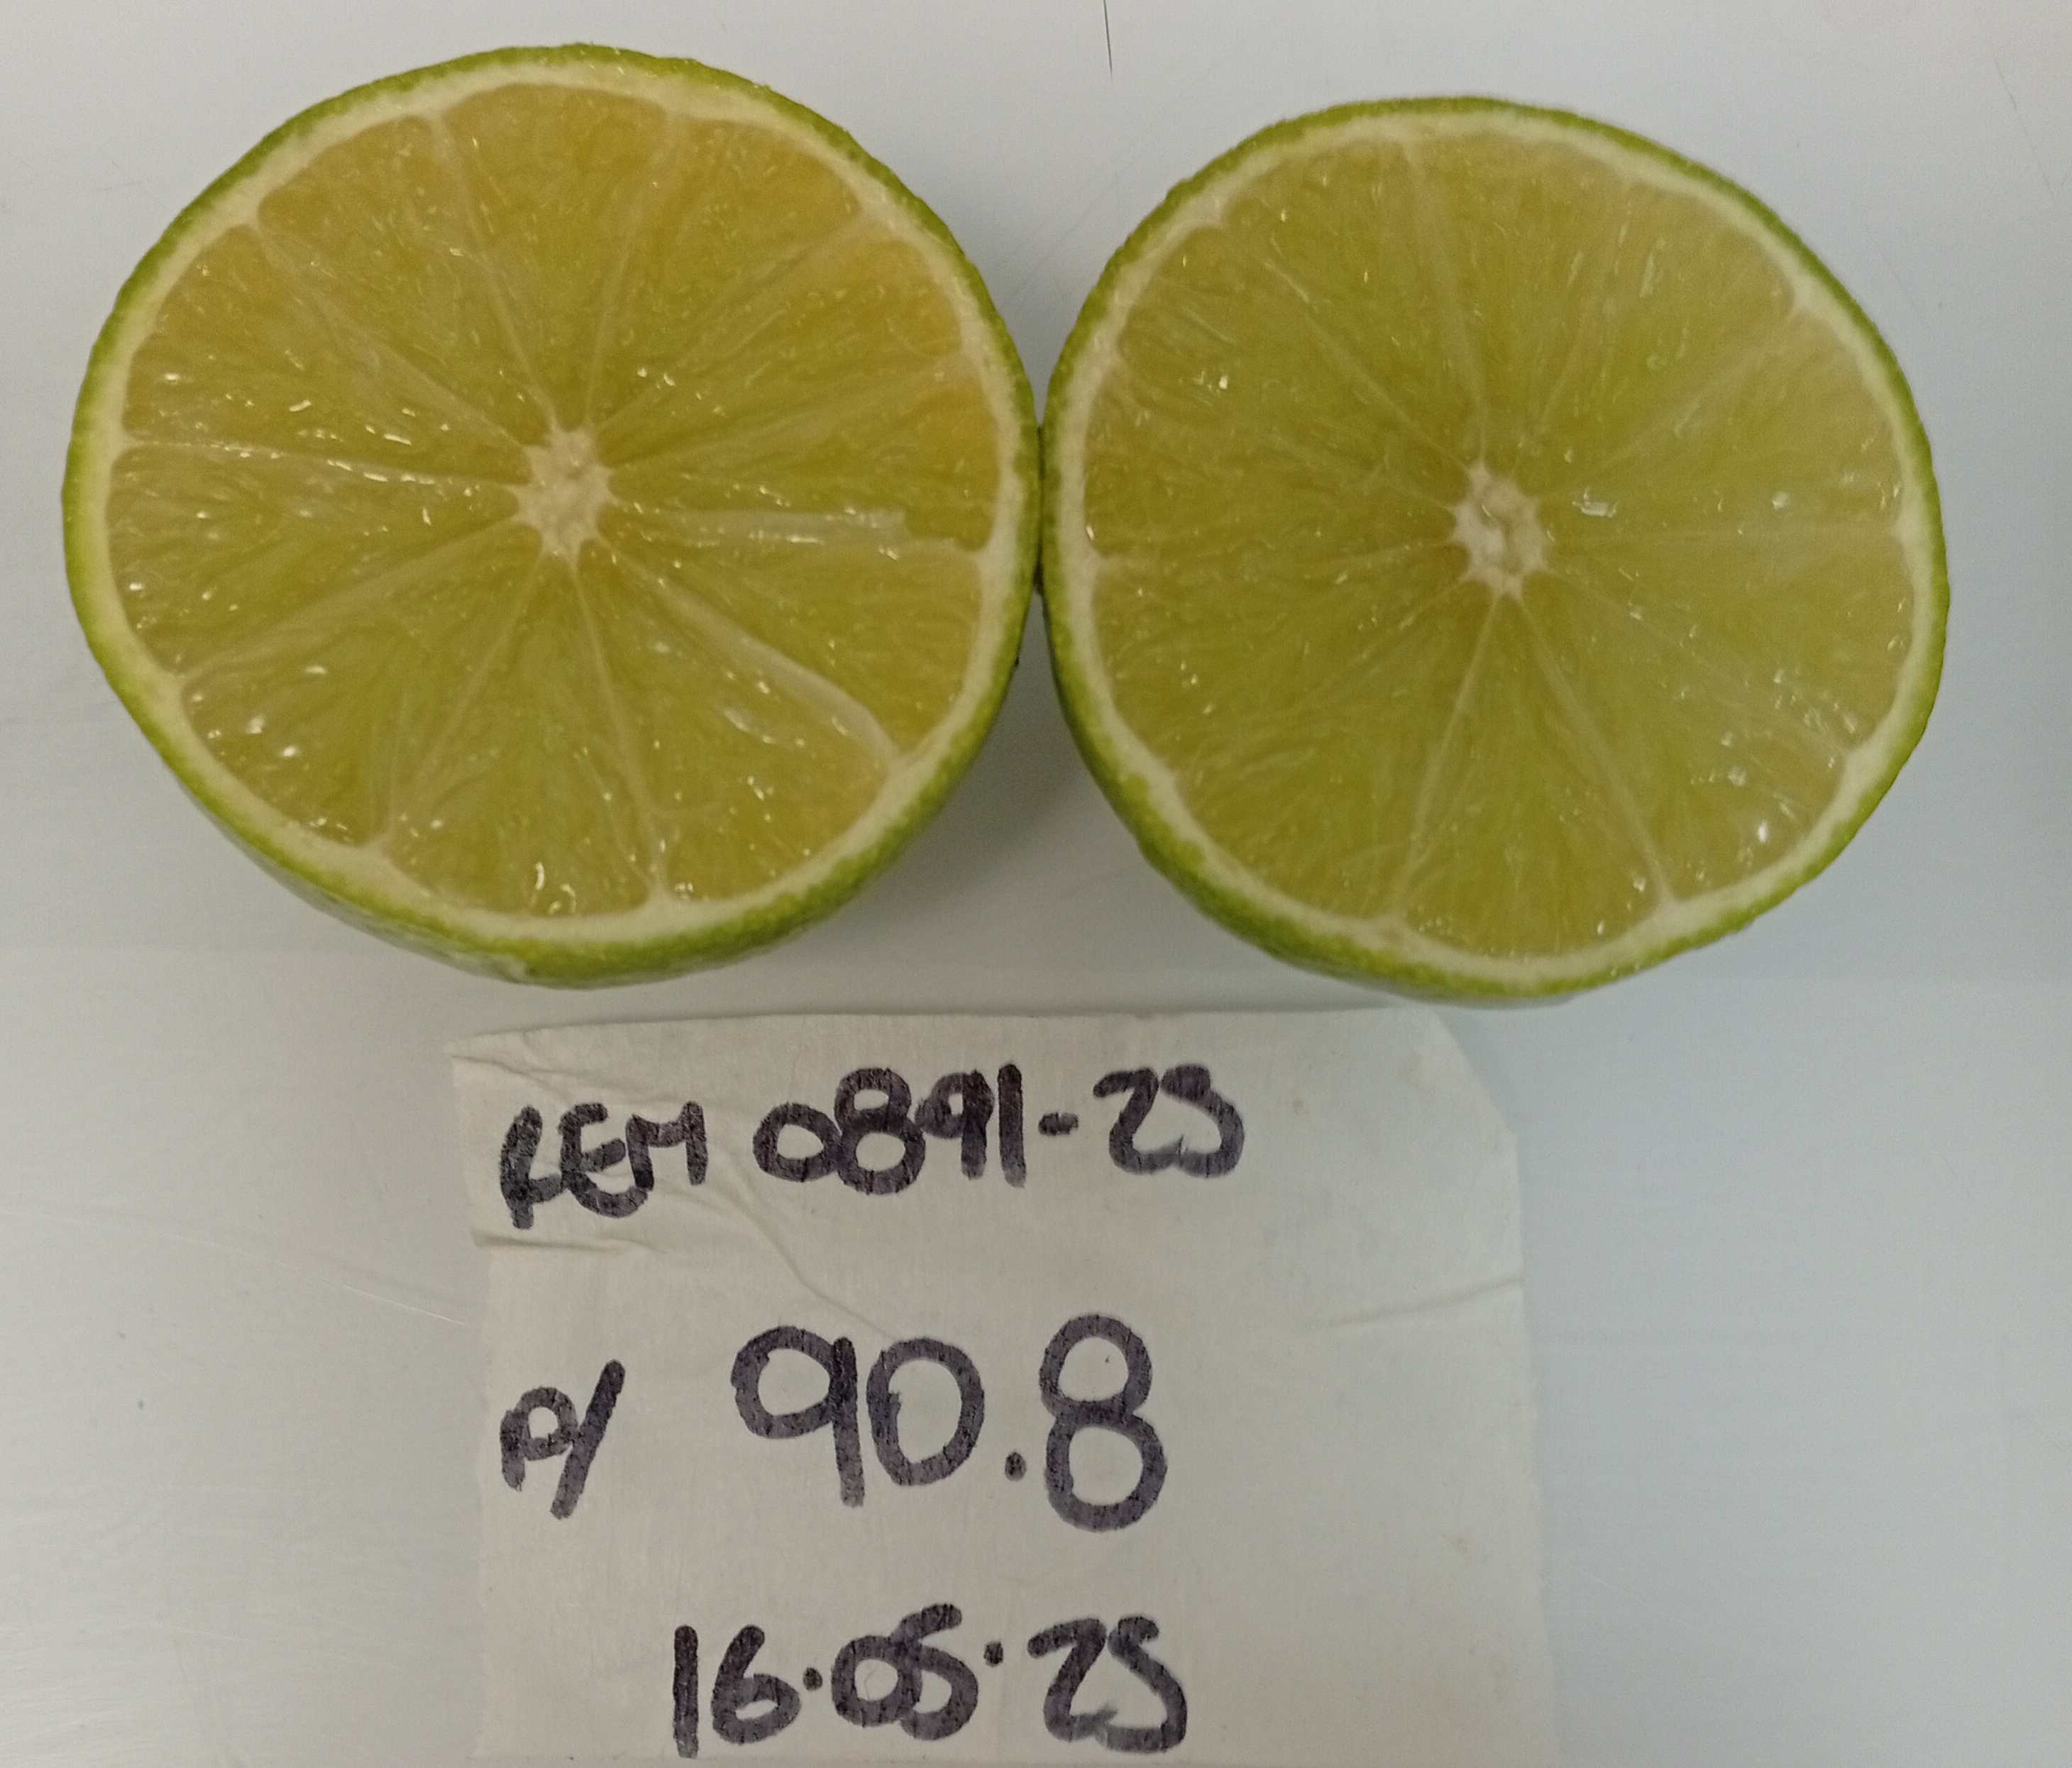 REM 0891-25
P/ 90.8
16.05.25